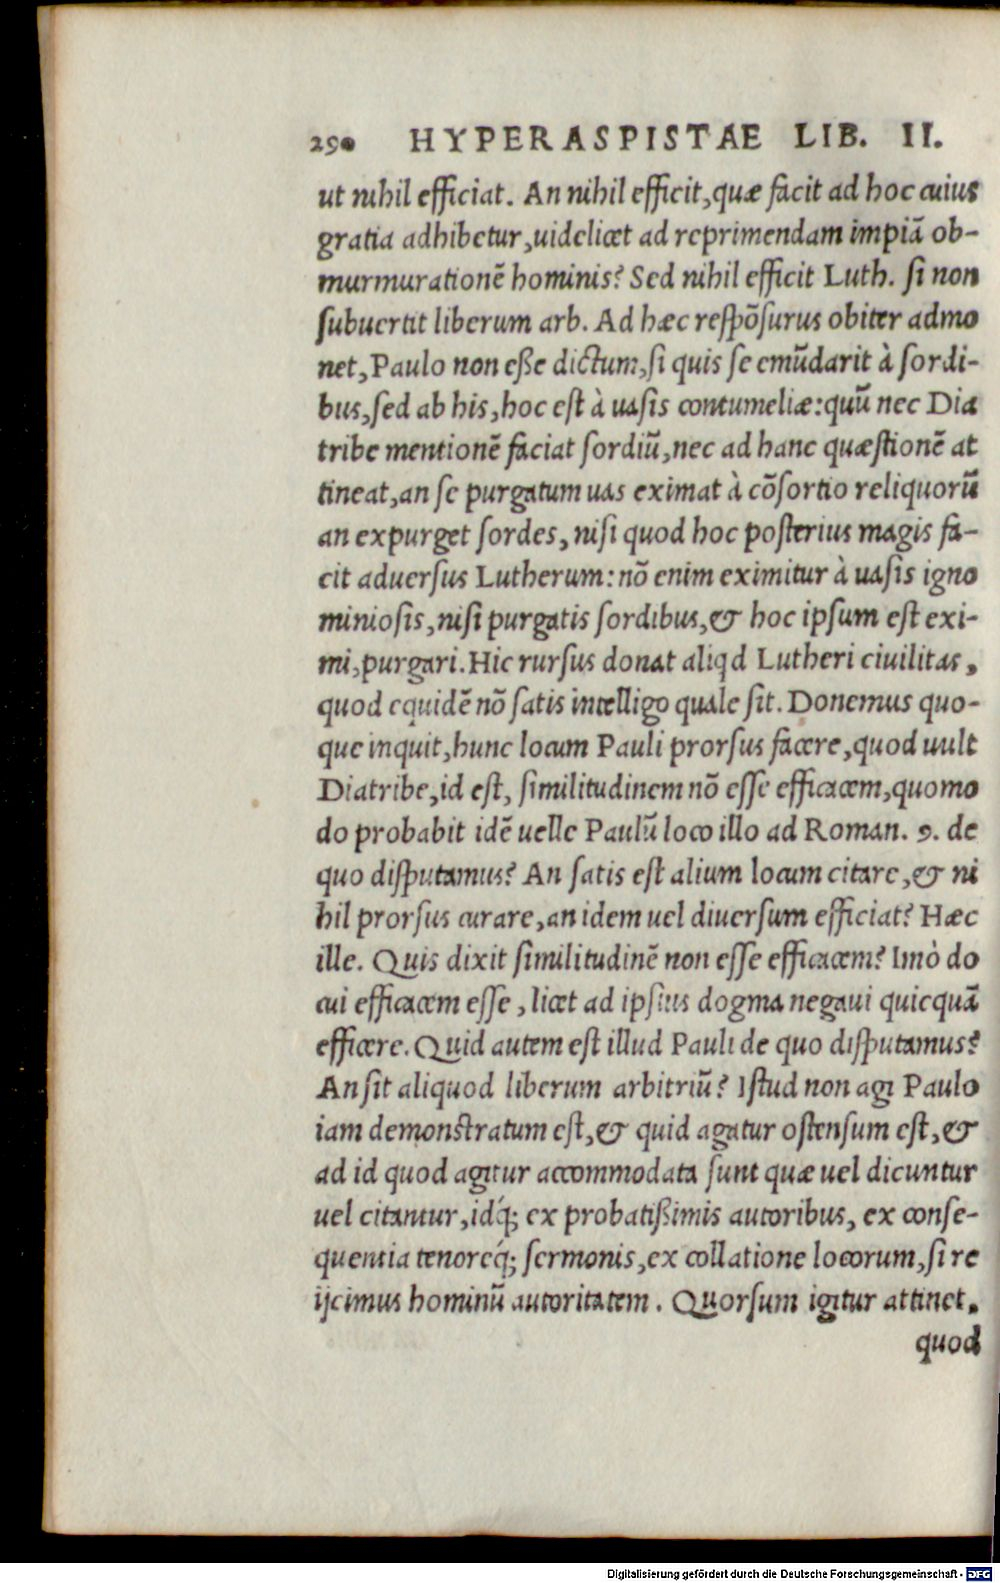 290 HYPERASPISTAE LIB. II.
ut nihil efficiat. An nihil efficit, quæ facit ad hoc cuius
gratia adhibetur, uidelicet ad reprimendam impiã ob-
murmurationẽ hominis? Sed nihil efficit Luth. si non
subuertit liberum arb. Ad hæc respõsurus obiter admo
net, Paulo non eße dictum, si quis se emũdarit à sordi-
bus, sed ab his, hoc est à uasis contumeliæ: quũ nec Dia
tribe mentionẽ faciat sordiũ, nec ad hanc quæstionẽ at
tineat, an se purgatum uas eximat à cõsortio reliquorũ
an expurget sordes, nisi quod hoc posterius magis fa-
cit aduersus Lutherum: nõ enim eximitur à uasis igno
miniosis, nisi purgatis sordibus, & hoc ipsum est exi-
mi, purgari. Hic rursus donat aliqd Lutheri ciuilitas,
quod equidẽ nõ satis intelligo quale sit. Donemus quo-
que inquit, hunc locum Pauli prorsus facere, quod uult
Diatribe, id est, similitudinem nõ esse efficacem, quomo
do probabit idẽ uelle Paulũ loco illo ad Roman. 9. de
quo disputamus? An satis est alium locum citare, & ni
hil prorsus curare, an idem uel diuersum efficiat? Hæc
ille. Quis dixit similitudinẽ non esse efficacem? Imò do
cui efficacem esse, licet ad ipsius dogma negaui quicquã
efficere. Quid autem est illud Pauli de quo disputamus?
An sit aliquod liberum arbitriũ? Istud non agi Paulo
iam demonstratum est, & quid agatur ostensum est, &
ad id quod agitur accommodata sunt quæ uel dicuntur
uel citantur, idq́; ex probatißimis autoribus, ex conse-
quentia tenoreq́; sermonis, ex collatione locorum, si re
ijcimus hominũ autoritatem. Quorsum igitur attinet,
quod
Digitalisierung gefördert durch die Deutsche Forschungsgemeinschaft - DFG